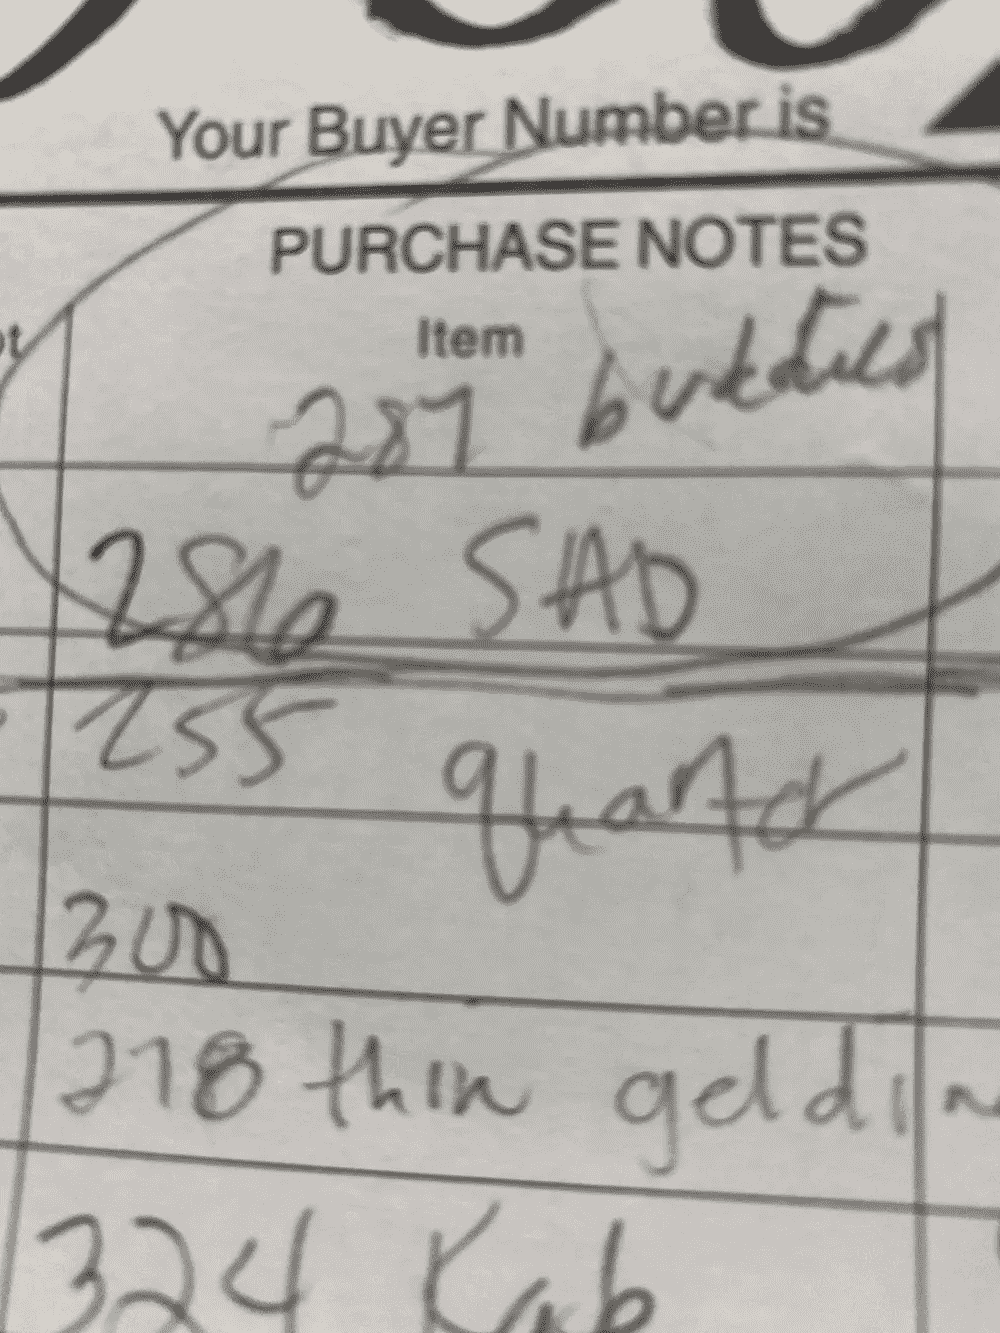 Your Buyer Number is
PURCHASE NOTES
Item
287
286 SAD
255 quarter
300
278 thin geldin
324 Kab